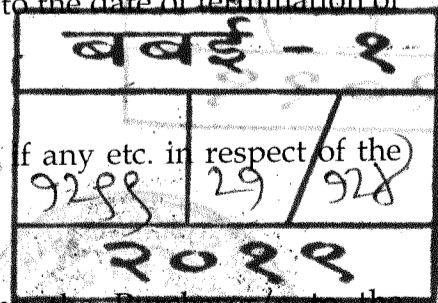 to the date of termination of
बबई - १
f any etc. in respect of the)
१२९९ २१ / १२४
२०१९